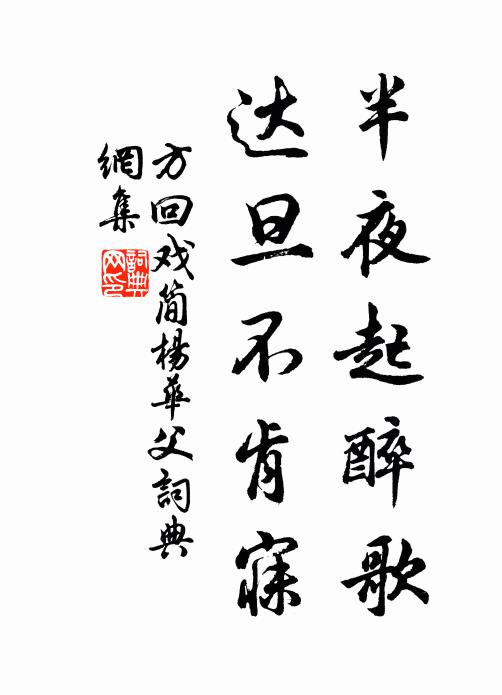 半夜起醉歌
达旦不肯寐
方回戏简杨华父词典
網集
詞典
网印